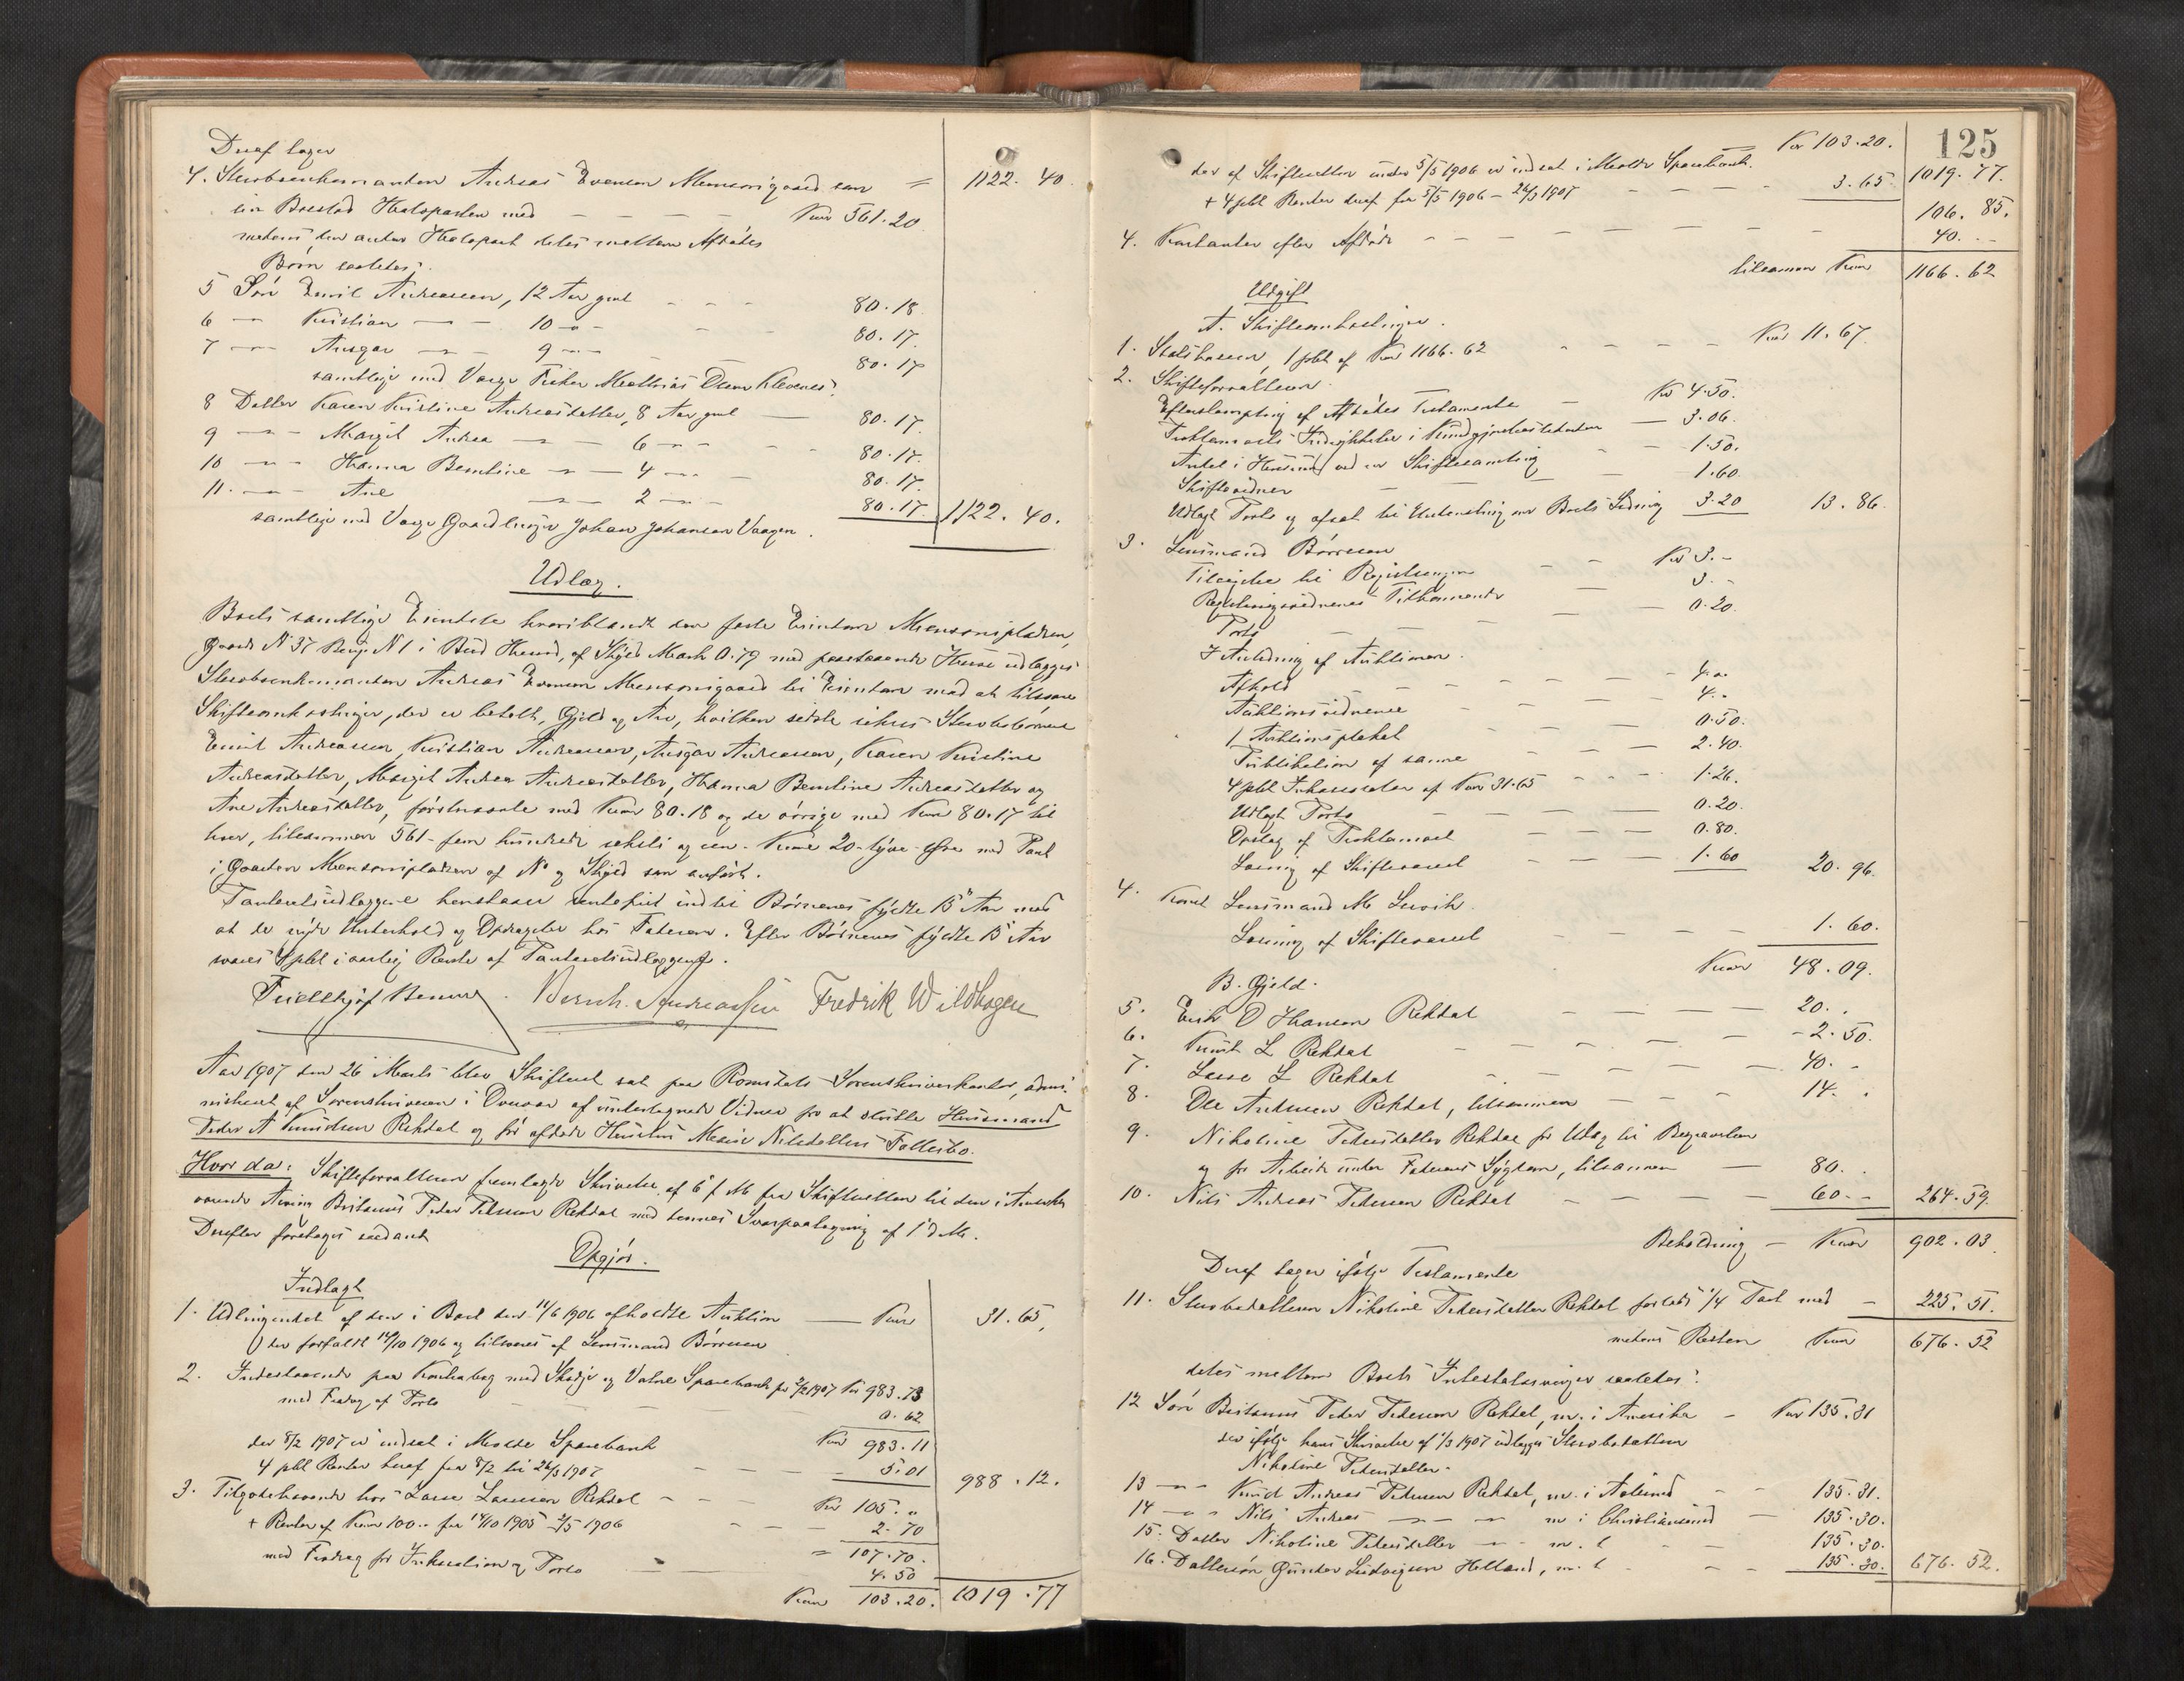 Deraf tager
4. Sterbeenkemanden Andreas Evensen Mensonigaard som = 1122. 40.
sin Boeslod Halvparten med — — — — Kroner 561.20
medens den anden Halvpart deles mellem Afdødes
Børn saaledes:
5 Søn Emil Andreassen, 12 Aar gml - - - 80.18
6 — Kristian — - 10 — - - - 80.17.
7 — Ansgar — - 9 — - 80.17
samtlige med Værge Fisker Mathias Olsen Klevenes.
8 Datter Karen Kristine Andreasdatter, 8 Aar gml — 80.17.
9 — Margit Andrea — 6 — - - 80.17.
10 — Hanna Berntine — 4 — - 80.17.
11. — Ane — 2 — - 80.17. 1122. 40.
samtlige med Værge Gaardbruger Johan Johansen Vaagen.
Udlæg.
Boets samtlige Eiendele hvoriblandt den faste Eiendom Mensonipladsen,
Gaards No 37 Brug No 1 i Bud Herred, af Skyld Mark 0.79 med paastaaende Huse udlægges
Sterbeenkemanden Andreas Evensen Mensonigaard til Eiendom mod at tilsvare
Skifteomkostninger, der er betalt, Gjeld og Arv, hvilken sidste sikres Sterbebørnene
Emil Andreassen, Kristian Andreassen, Ansgar Andreassen, Karen Kristine
Andreasdatter, Margit Andrea Andreasdatter, Hanna Berntine Andreasdatter og
Ane Andreasdatter, førstnævnte med Kroner 80.18 og de øvrige med Kroner 80.17 til
hver, tilsammen 561 - fem hundrede seksti og een - Kroner 20 - tyve - Øre med Pant
i Gaarden Mensonipladsen af No og Skyld som anført.
Panteudlæggene henstaaer rentefrit indtil Børnenes fyldte 15 Aar mod
at de nyder Underhold og Opdragelse hos Faderen. Efter Børnenes fyldte 15 Aar
svares 4 pCt i aarlig Rente af Panteudlæggene.
Fridthjof Bernsen. Bernh. Andreassen Fredrik Wildhagen
Aar 1907 den 26 Marts blev Skifteret sat paa Romsdals Sorenskriverkontor, admi-
nistreret af Sorenskriveren i Overvær af undertegnede Vidner for at slutte Husmand
Peder A Knudsen Rekdal og før afdøde Hustru Marie Nilsdatters Fællesbo.
Hvor da: Skifteforvalteren fremlagde Skrivelse af 6 f. M. fra Skifteretten til den i Amerika
værende Arving Britanus Peder Pedersen Rekdal med dennes Svarpaategning af 1 d. M.
Derefter foretoges saadant
Opgjør.
Indtægt
1. Udbringendet af den i Boet den 11/6 1906 afholdte Auktion — Kroner 31.65,
der forfaldt 14/10 1906 og tilsvares af Lensmand Børresen
2. Indestaaende paa Kontrabog med Skodje og Vatne Sparebank pr 2/2 1907 Kr 983.73
med Fradrag af Porto — — — 0.62
der 8/2 1907 er indsat i Molde Sparebank Kr 983.11
4 pCt Renter heraf fra 8/2 til 26/3 1907 — — — 5.01 988.12.
3. Tilgodehavende hos Lasse Larssen Rekdal - — — Kr 105. "
+ Renter af Kroner 100.- fra 14/10 1905 - 5/5 1906 — — 2.70
= 107.70.
med Fradrag for Inkassation og Porto — — 4.50
Kroner 103.20. 1019.77
125
Kr 103.20. 1019.77.
der af Skifteretten under 5/5 1906 er indsat i Molde Sparebank.
+ 4 pCt Renter deraf fra 5/5 1906 - 26/3 1907 - — — — 3.65. 106. 85.
4. Kontanter efter Afdøde - — — — — — — 40. -
tilsammen Kroner 1166.62
Udgift
A. Skifteomkostninger.
1. Statskassen, 1 pCt af Kroner 1166.62 - - — — — Kr 11.67.
2. Skifteforvalteren
Efterstempling af Afdødes Testamente — — Kr 4.50.
Proklamaets Indrykkelse i Kundgjørelsestidende — 3.06.
Andel i Hensend ved en Skiftesamling — 1.50.
Skiftevidner — — — — 1.60
Udlagt Porto og afsat til Udsending av Boets Ledning 3.20 13.86.
3. Lensmand Børresen
Tilsigelse til Registreringen — — Kr 3.-
Registreringsvidnenes Tilkommende 3.-
Porto — — — — 0.20.
I Anledning af Auktionen.
Afhold — — — — — 4. "
Auktionsvidnerne — — — — 4. "
1 Auktionsplakat — — — 0.50.
Publikation af samme — — — — 2.40.
4 pCt Inkassation af Kroner 31.65 - - - 1.26.
Udlagt Porto — — — — 0.20.
Opslag af Proklamaet — — — 0.80.
Læsning af Skifteraad — — — 1.60 20.96.
4. Konst Lensmand M. Lervik.
Læsning af Skifteraad — — — — — 1.60.
Kroner 48.09.
B. Gjeld.
5. Erik O Hansen Rekdal — — — — 20. .
6. Knut L Rekdal — — — — — - 2.50.
7. Lasse L Rekdal — — — — — 40. -
8. Ole Andersen Rekdal, tilsammen — — — 14. .
9. Nikoline Pedersdatter Rekdal for Udlæg til Begravelsen
og for Arbeide under Faderens Sygdom, tilsammen — 80. .
10. Nils Andreas Pedersen Rekdal — — — — 60. - 264.59.
Beholdning — Kroner 902.03.
Deraf tager ifølge Testamente
11. Sterbedatteren Nikoline Pedersdatter Rekdal forlods 1/4 Part med — 225.51.
medens Resten Kroner 676.52
deles mellem Boets Intestatarvinger saaledes:
12 Søn Britanus Peder Pedersen Rekdal, m. i Amerika - Kr 135.31
der ifølge hans Skrivelse af 1/3 1907 udlægges Sterbedatteren
Nikoline Pedersdatter.
13 — Knud Andreas Pedersen Rekdal, m. i Aalesund - - 135.31.
14 — Nils Andreas — — m. i Christiansund — 135.30.
15. Datter Nikoline Pedersdatter — m. l - - 135.30.
16. Dattersøn Gunder Ludvigsen Helland, m. l - - - 135.30. 676.52.